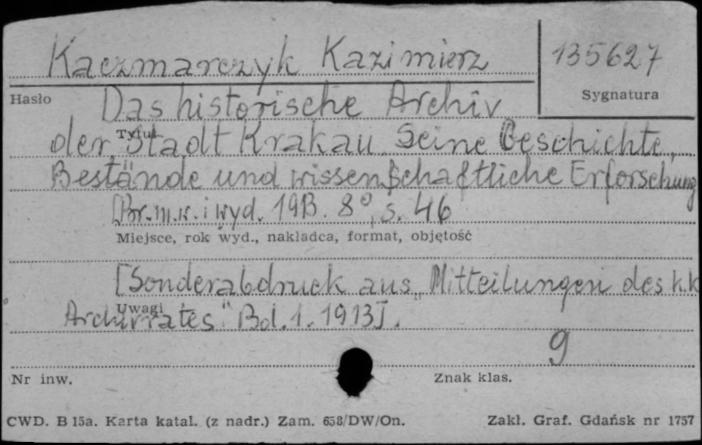 Kaczmarczyk Kazimierz
135627
Hasło
Sygnatura
Das historische Archiv
Tytuł
der Stadt Krakau. Seine Geschichte,
Bestände und wissenschaftliche Erforschung
[Br. m. w. i wyd. 1913. 8°, s. 46
Miejsce, rok wyd., nakładca, format, objętość
[Sonderabdruck aus „Mitteilungen des k.k
Uwagi
Archivrates" Bd. 1. 1913].
9
Nr inw.
Znak klas.
CWD. B 15a. Karta katal. (z nadr.) Zam. 658/DW/On.
Zakł. Graf. Gdańsk nr 1757